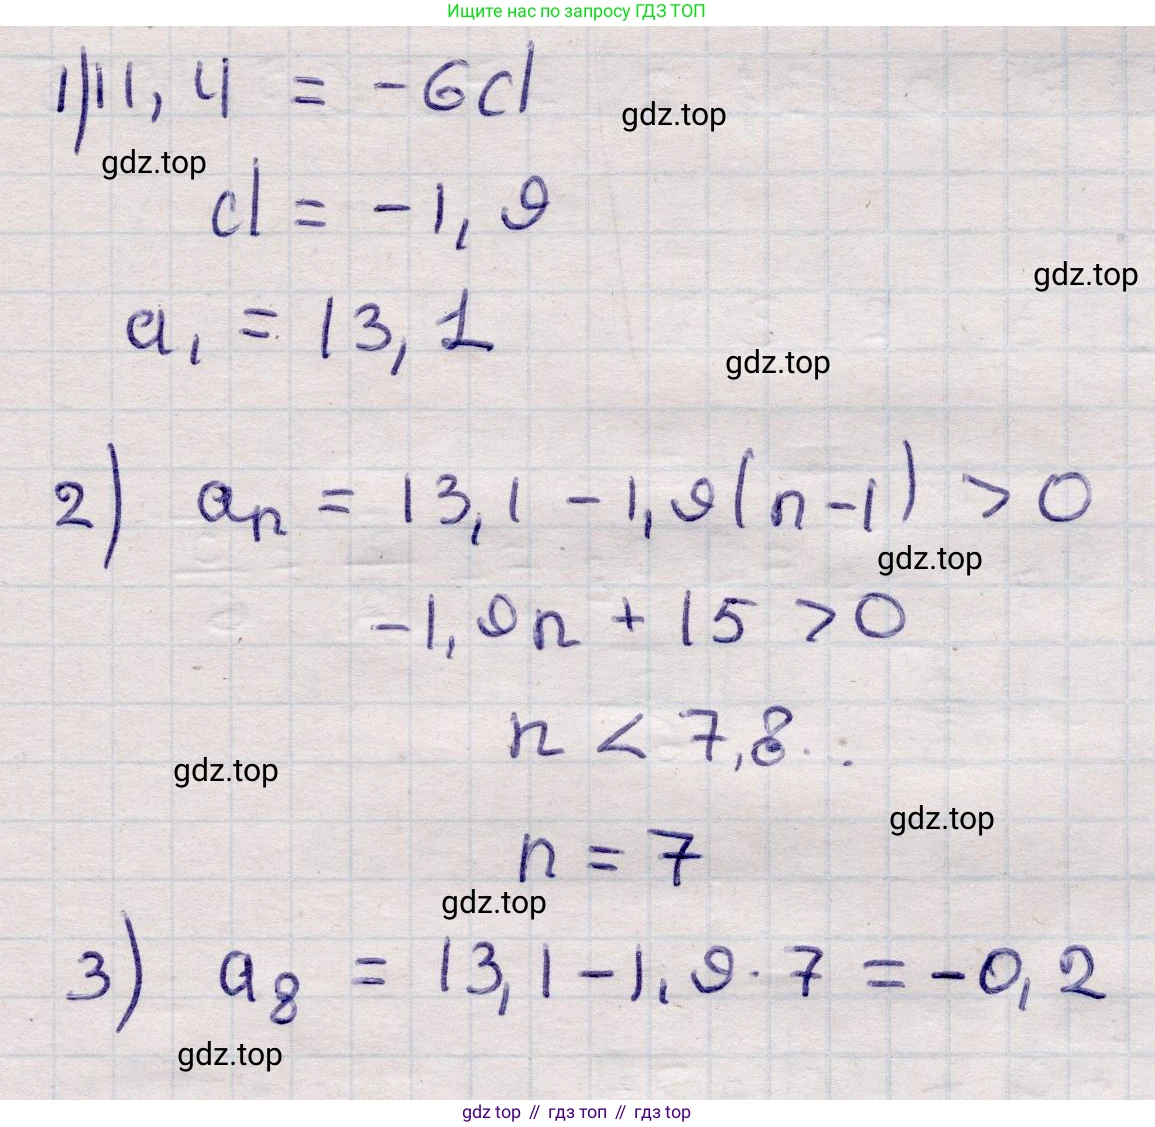 Ищите нас по запросу ГДЗ ТОП
1) 11,4 = -6d
gdz.top
gdz.top
d = -1,9
gdz.top
a₁ = 13,1
gdz.top
2) aₙ = 13,1 - 1,9(n-1) > 0
gdz.top
-1,9n + 15 > 0
n < 7,8...
gdz.top
gdz.top
n = 7
gdz.top
3) a₈ = 13,1 - 1,9·7 = -0,2
gdz.top
gdz top // гдз топ // gdz top